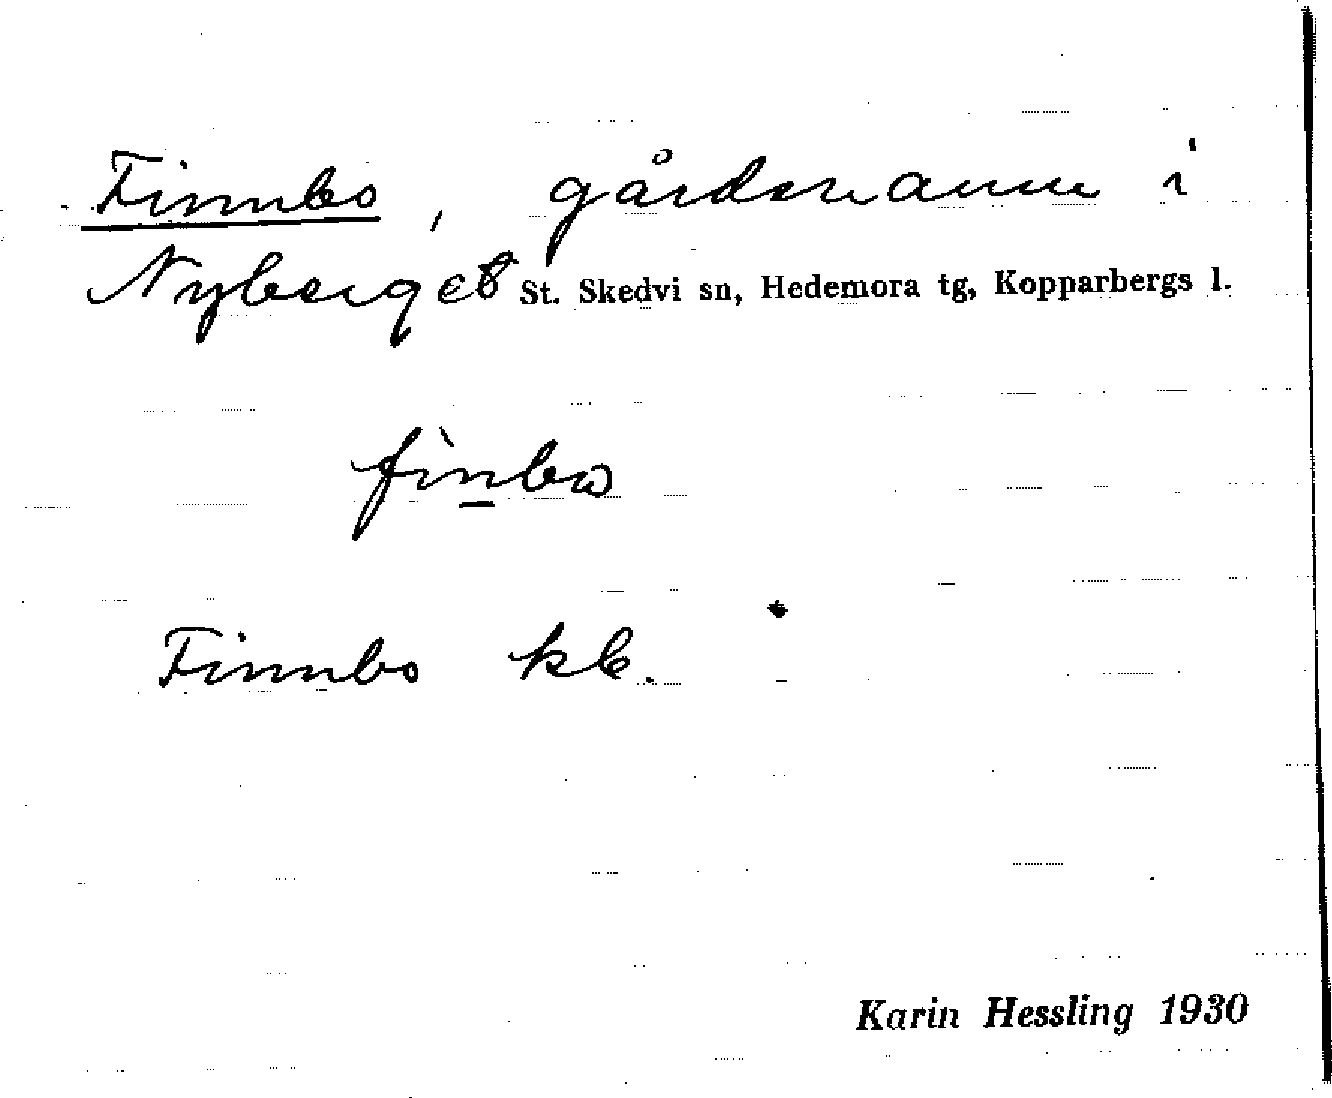 Finnbo, gårdsnamn i
Nyberget St. Skedvi sn, Hedemora tg, Kopparbergs l.
fìn̲bω
Finnbo kb.
Karin Hessling 1930